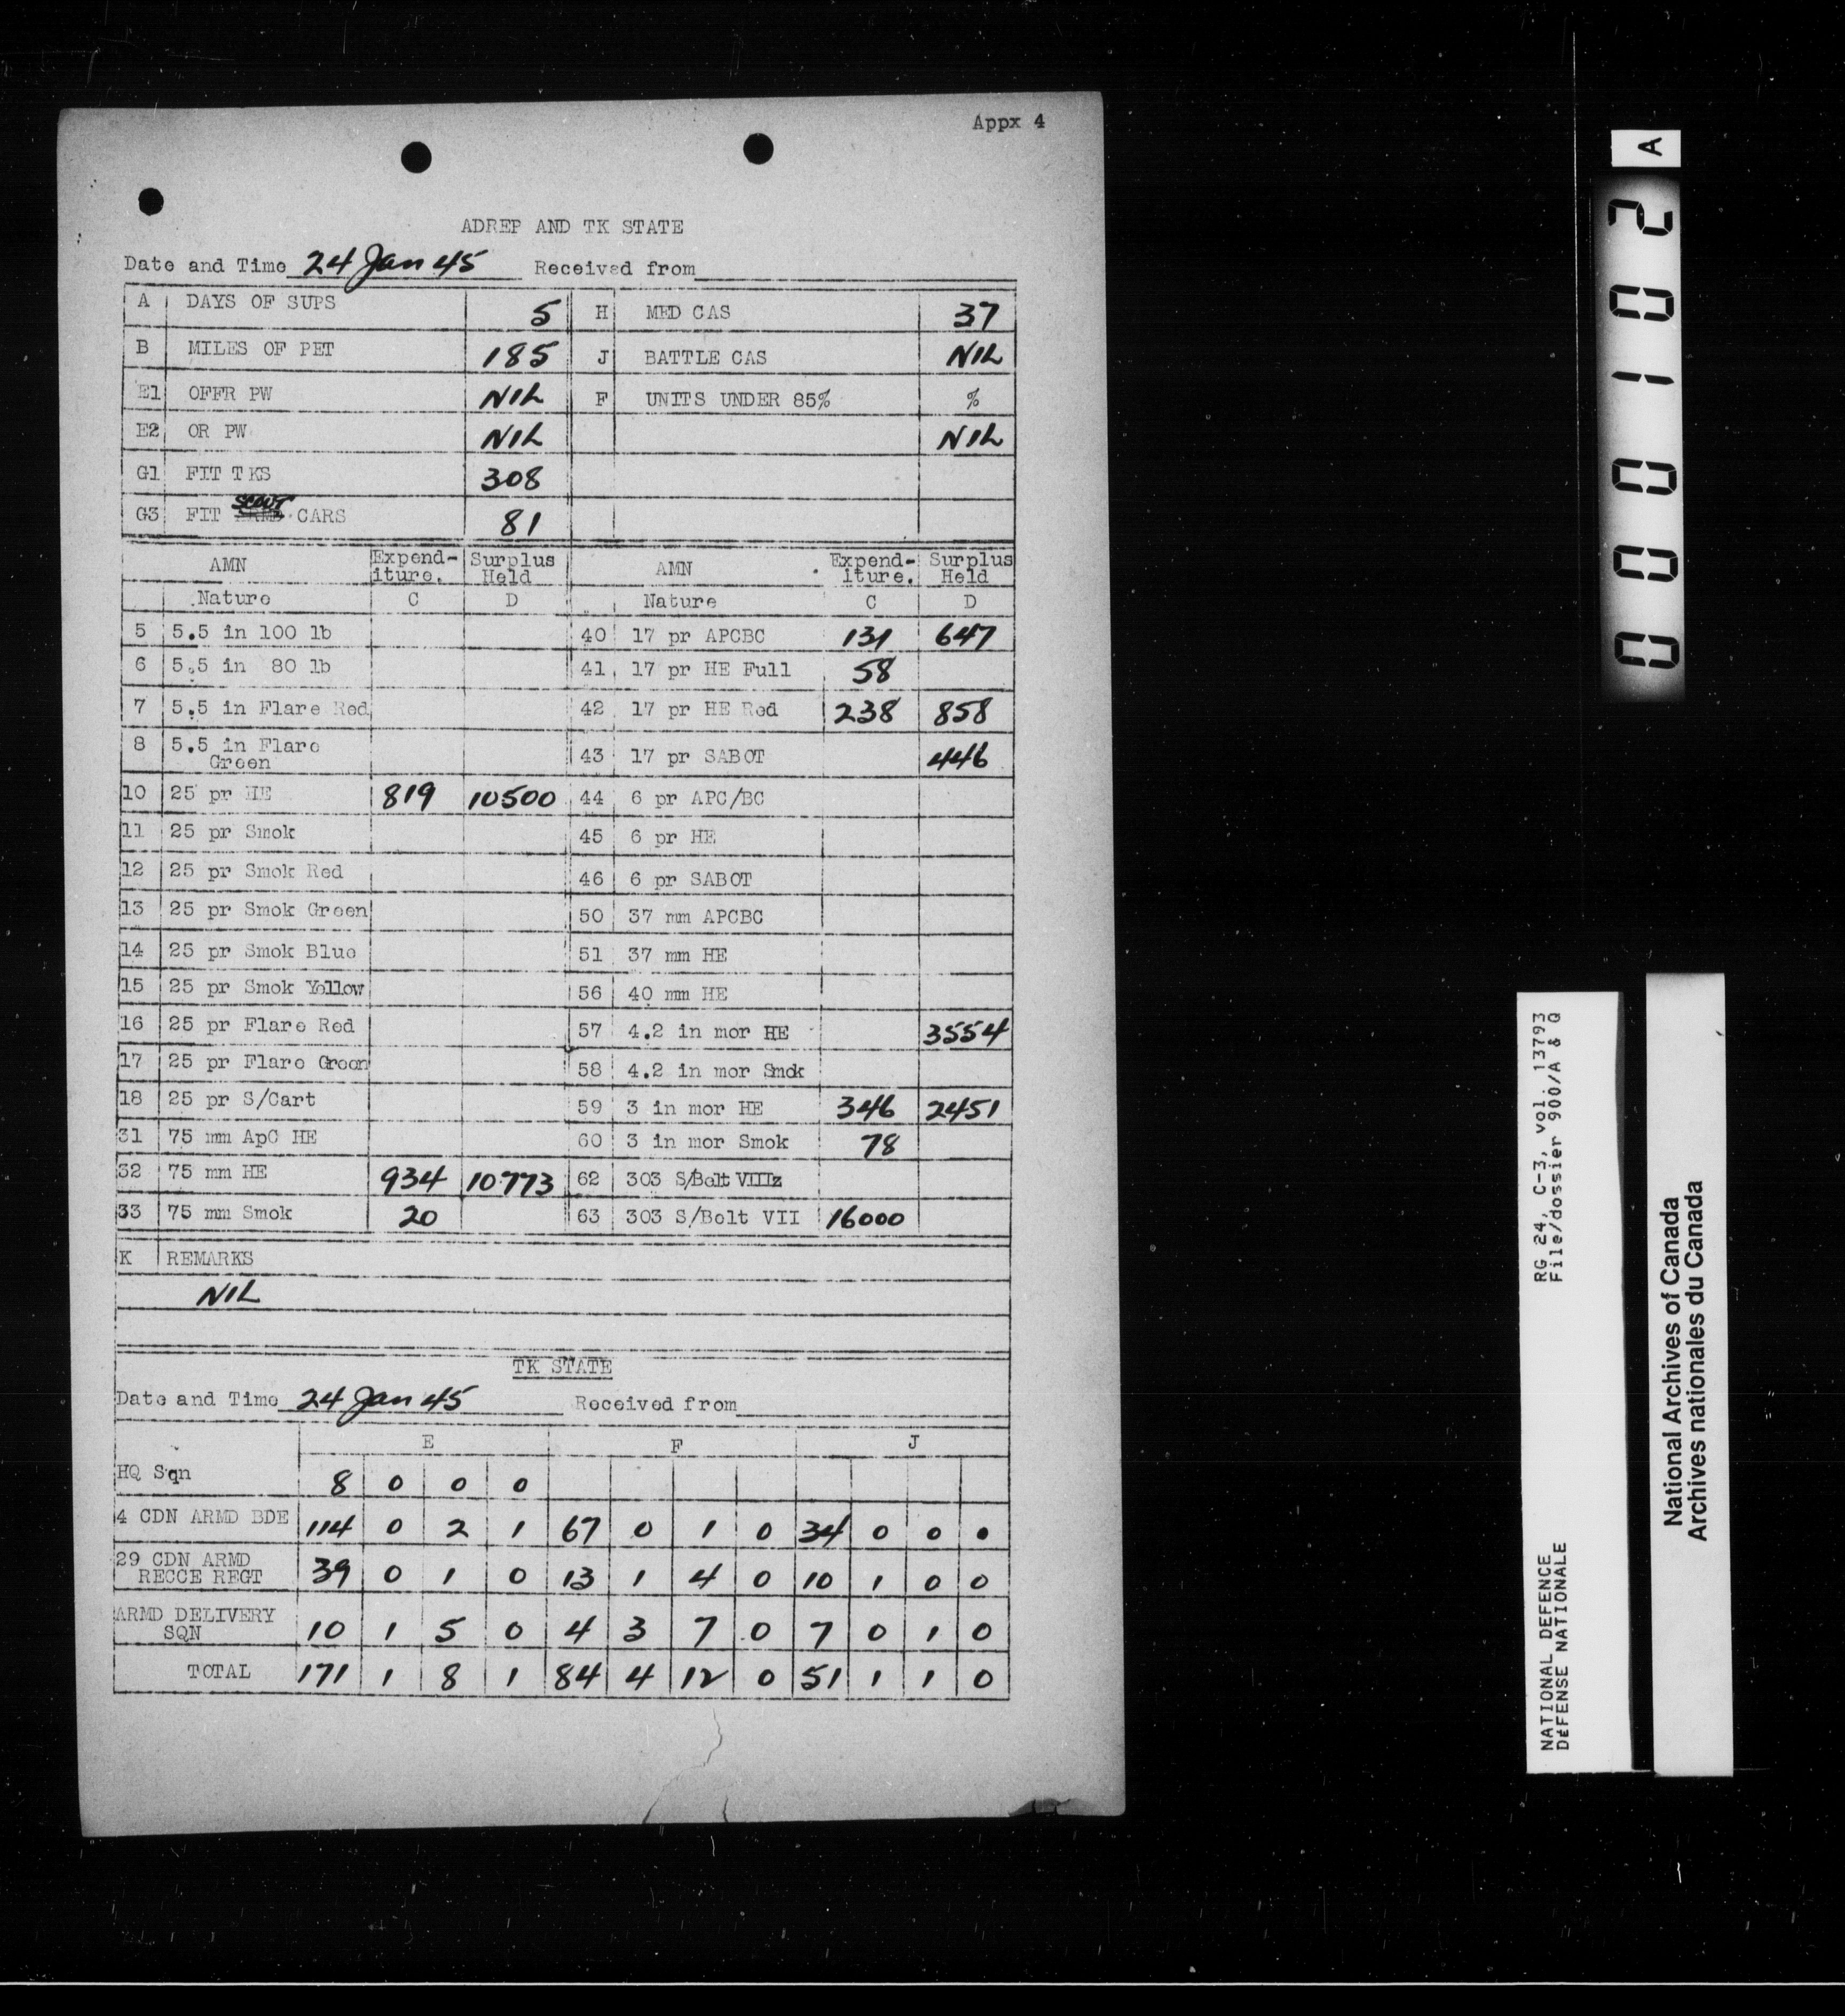 Appx 4
ADREP AND TK STATE
Date and Time 24 Jan 45 Received from
A DAYS OF SUPS 5 H MED CAS 37
B MILES OF PET 185 J BATTLE CAS NIL
E1 OFFR PW NIL F UNITS UNDER 85% %
E2 OR PW NIL NIL
G1 FIT TKS 308
SCOUT
G3 FIT ARMD CARS 81
AMN Expend- Surplus AMN Expend- Surplus
iture. Held iture. Held
Nature C D Nature C D
5 5.5 in 100 lb 40 17 pr APCBC 131 647
6 5.5 in 80 lb 41 17 pr HE Full 58
7 5.5 in Flare Red 42 17 pr HE Red 238 858
8 5.5 in Flare Green 43 17 pr SABOT 446
10 25 pr HE 819 10500 44 6 pr APC/BC
11 25 pr Smok 45 6 pr HE
12 25 pr Smok Red 46 6 pr SABOT
13 25 pr Smok Green 50 37 mm APCBC
14 25 pr Smok Blue 51 37 mm HE
15 25 pr Smok Yellow 56 40 mm HE
16 25 pr Flare Red 57 4.2 in mor HE 3554
17 25 pr Flare Green 58 4.2 in mor Smok
18 25 pr S/Cart 59 3 in mor HE 346 2451
31 75 mm ApC HE 60 3 in mor Smok 78
32 75 mm HE 934 10773 62 303 S/Belt VIIIz
33 75 mm Smok 20 63 303 S/Belt VII 16000
K REMARKS
NIL
TK STATE
Date and Time 24 Jan 45 Received from
E F J
HQ Sqn 8 0 0 0
4 CDN ARMD BDE 114 0 2 1 67 0 1 0 34 0 0 0
29 CDN ARMD
RECCE REGT 39 0 1 0 13 1 4 0 10 1 0 0
ARMD DELIVERY
SQN 10 1 5 0 4 3 7 0 7 0 1 0
TOTAL 171 1 8 1 84 4 12 0 51 1 1 0
000102 A
RG 24, C-3, vol. 13793
File/dossier 900/A & Q
NATIONAL DEFENCE
DÉFENSE NATIONALE
National Archives of Canada
Archives nationales du Canada